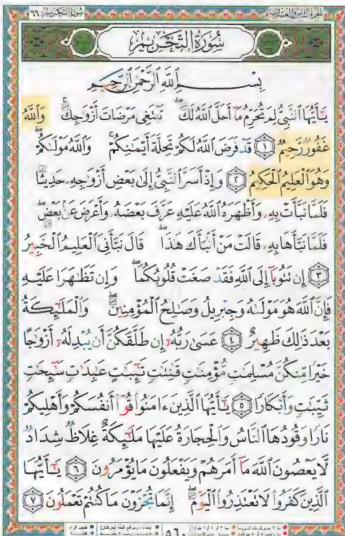 سُورَةُ التَّحْرِيمِ
بِسْمِ اللَّهِ الرَّحْمَٰنِ الرَّحِيمِ
يَٰٓأَيُّهَا ٱلنَّبِيُّ لِمَ تُحَرِّمُ مَآ أَحَلَّ ٱللَّهُ لَكَۖ تَبْتَغِي مَرْضَاتَ أَزْوَٰجِكَۚ وَٱللَّهُ
غَفُورٞ رَّحِيمٞ ١ قَدْ فَرَضَ ٱللَّهُ لَكُمْ تَحِلَّةَ أَيْمَٰنِكُمْۚ وَٱللَّهُ مَوْلَىٰكُمْۖ
وَهُوَ ٱلْعَلِيمُ ٱلْحَكِيمُ ٢ وَإِذْ أَسَرَّ ٱلنَّبِيُّ إِلَىٰ بَعْضِ أَزْوَٰجِهِۦ حَدِيثٗا
فَلَمَّا نَبَّأَتْ بِهِۦ وَأَظْهَرَهُ ٱللَّهُ عَلَيْهِ عَرَّفَ بَعْضَهُۥ وَأَعْرَضَ عَنۢ بَعْضٖۖ
فَلَمَّا نَبَّأَهَا بِهِۦ قَالَتْ مَنْ أَنۢبَأَكَ هَٰذَاۖ قَالَ نَبَّأَنِيَ ٱلْعَلِيمُ ٱلْخَبِيرُ
٣ إِن تَتُوبَآ إِلَى ٱللَّهِ فَقَدْ صَغَتْ قُلُوبُكُمَاۖ وَإِن تَظَٰهَرَا عَلَيْهِ
فَإِنَّ ٱللَّهَ هُوَ مَوْلَىٰهُ وَجِبْرِيلُ وَصَٰلِحُ ٱلْمُؤْمِنِينَۖ وَٱلْمَلَٰٓئِكَةُ
بَعْدَ ذَٰلِكَ ظَهِيرٌ ٤ عَسَىٰ رَبُّهُۥٓ إِن طَلَّقَكُنَّ أَن يُبْدِلَهُۥٓ أَزْوَٰجًا
خَيْرٗا مِّنكُنَّ مُسْلِمَٰتٖ مُّؤْمِنَٰتٖ قَٰنِتَٰتٖ تَٰٓئِبَٰتٍ عَٰبِدَٰتٖ سَٰٓئِحَٰتٖ
ثَيِّبَٰتٖ وَأَبْكَارٗا ٥ يَٰٓأَيُّهَا ٱلَّذِينَ ءَامَنُوا۟ قُوٓا۟ أَنفُسَكُمْ وَأَهْلِيكُمْ
نَارٗا وَقُودُهَا ٱلنَّاسُ وَٱلْحِجَارَةُ عَلَيْهَا مَلَٰٓئِكَةٌ غِلَاظٞ شِدَادٞ
لَّا يَعْصُونَ ٱللَّهَ مَآ أَمَرَهُمْ وَيَفْعَلُونَ مَا يُؤْمَرُونَ ٦ يَٰٓأَيُّهَا
ٱلَّذِينَ كَفَرُوا۟ لَا تَعْتَذِرُوا۟ ٱلْيَوْمَۖ إِنَّمَا تُجْزَوْنَ مَا كُنتُمْ تَعْمَلُونَ ٧
٥٦٠